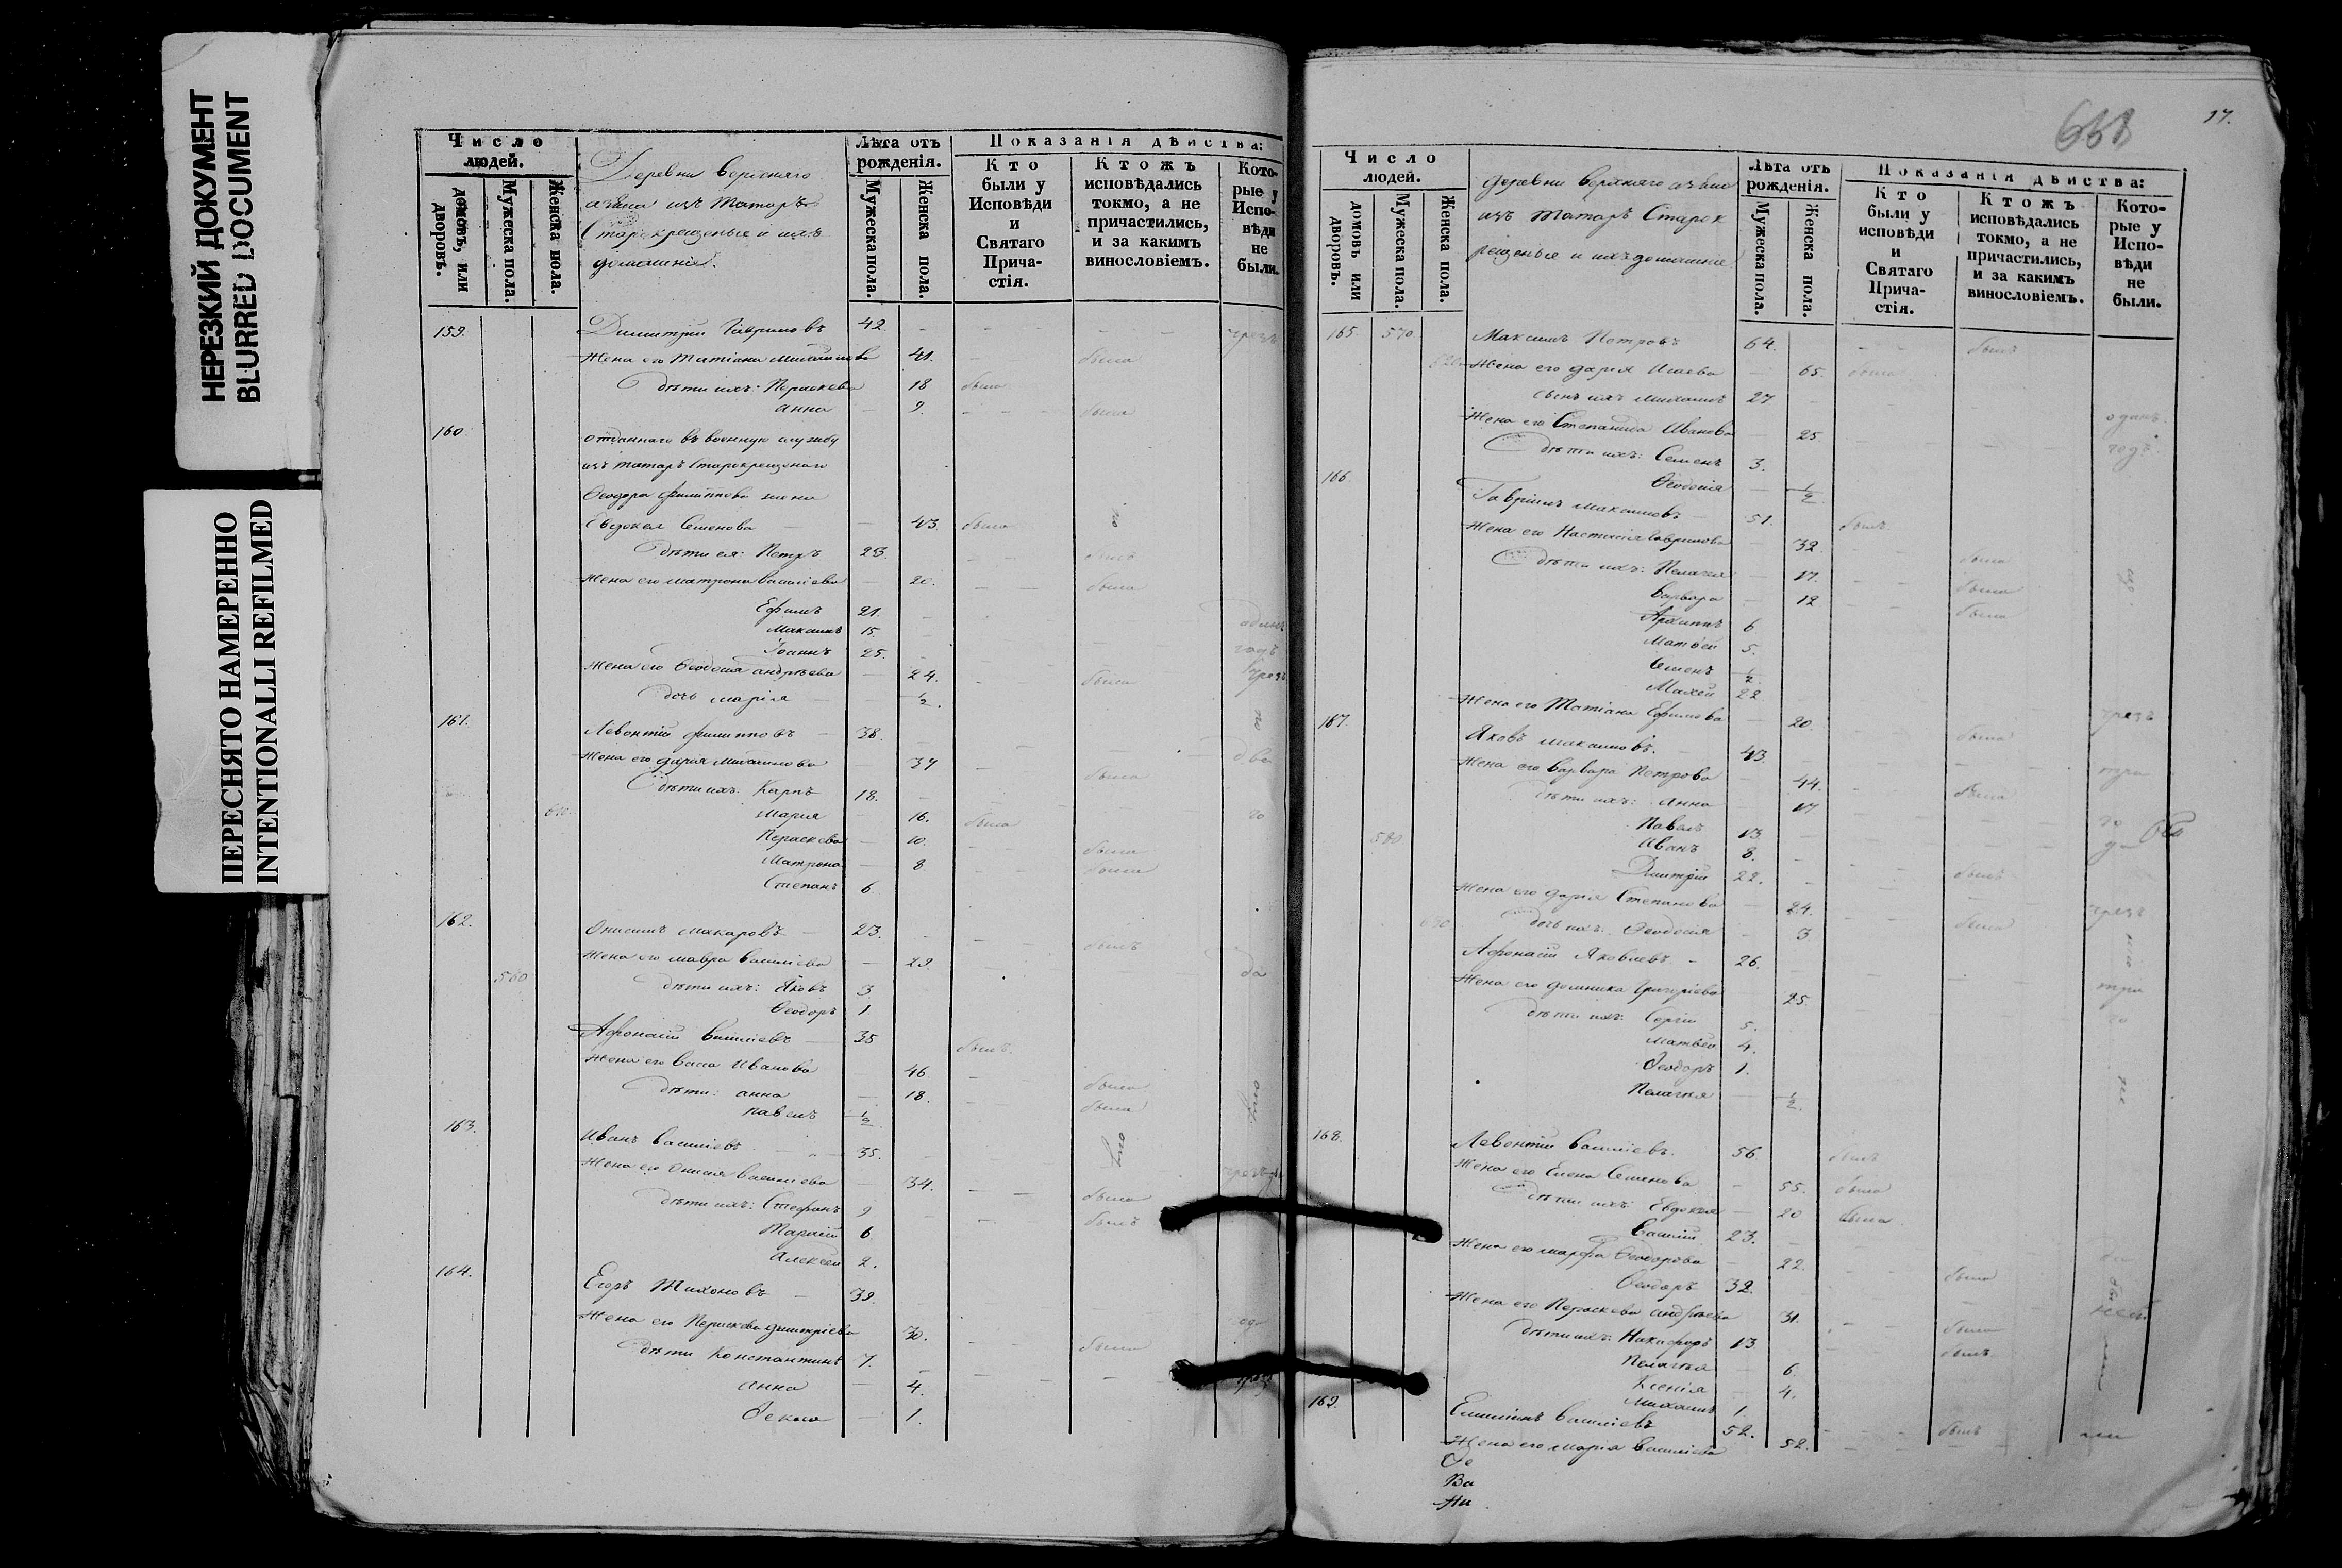 НЕРЕЗКИЙ ДОКУМЕНТ
BLURRED DOCUMENT
ПЕРЕСНЯТО НАМЕРЕННО
INTENTIONALLI REFILMED
Число людей.
домовъ, или дворовъ.
Мужеска пола.
Женска пола.
Деревни верхняго
азяка изъ Татаръ
Старокрещеные и ихъ
домашніе.
Лѣта отъ рожденія.
Мужеска пола.
Женска пола.
Показанія дѣйства:
Кто были у Исповѣди и Святаго Прича-стія.
Ктожъ исповѣдались токмо, а не причастились, и за какимъ винословіемъ.
Кото-рые у Испо-вѣди не были.
159. Димитрій Гавриловъ 42. чрезъ
Жена его Татіана Михаилова 41. была
Дѣти ихъ: Пераскева 18 была
анна 9. была
160. отданнаго въ военную службу
изъ татаръ Старокрещенаго
Ѳеодора филиппова жена
Евдокея Семенова 43 была
Дѣти ея: Петръ 23. былъ
Жена его матрона василіева 20. была
Ефимъ 21.
Максимъ 15. адинъ
Іоаннъ 25. годъ
Жена его Ѳеодосія андрѣева 24. была чрезъ
дочь марія ½.
161. Левонтій филипповъ 38.
Жена его дарья михаилова 37 была два
Дѣти ихъ: Карпъ 18.
610 Мария 16. была го
Пераскева 10. была
Матрона 8. была
Степанъ 6.
162. Онисимъ макаровъ 23. былъ
Жена его мавра василіева 29. да
560 дѣти ихъ: Яковъ 3
Ѳеодоръ 1
Афонасій Василіевъ 35 былъ
Жена его васса Иванова 46 была
дѣти: анна 18. была
павелъ ½
163. Иванъ василіевъ 35.
Жена его василіева 34. была
дѣти ихъ: Стефанъ 9 былъ
Тарасій 6
Алексей 2.
164. Егоръ Тихоновъ 39.
Жена его Пераскева димитріева 30. была
дѣти Константинъ 7.
анна 4.
Ѳекла 1.
17.
668
Число людей.
домовъ или дворовъ.
Мужеска пола.
Женска пола.
деревни верхняго азяка
изъ татаръ Старок
рещеные и ихъ домашніе.
Лѣта отъ рожденія.
Мужеска пола.
Женска пола.
Показанія дѣйства:
Кто были у исповѣди и Святаго Прича-стія.
Ктожъ исповѣдались токмо, а не причастились, и за какимъ винословіемъ.
Кото-рые у Испо-вѣди не были.
165. 570 Максимъ Петровъ 64. былъ
620 Жена его дарья Исаева 65. была
сынъ ихъ михаилъ 27 одинъ
Жена его Степанида Иванова 25 годъ
дѣти ихъ: Семенъ 3.
Ѳеодосія ½
166. Гавріилъ максимовъ 51. былъ
Жена его Настасія Гаврилова 32. была
дѣти ихъ: Пелагея 17. была
Варвара 12 была
Архиппъ 6
Матвѣй 5.
Семенъ ½.
22
Жена его Татіана Ефимова 20. была чрезъ
167. Яковъ максимовъ. 43.
Жена его Варвара Петрова 44. была три
дѣти ихъ: Анна 17 го
Павелъ 13
580 Иванъ 8.
Дмитрій 22. былъ
Жена его дарія Степанова 24. была чрезъ
630 дочь ихъ Ѳеодосія 3
Афонасій Яковлевъ 26.
Жена его домника Григоріева 25. три
дѣти ихъ: Сергій 5. го
матвѣй 4.
Ѳеодоръ 1.
Пелагея ½.
168. Левонтій Василіевъ. 56. былъ
Жена его Елена Семенова 55. была
дѣти ихъ: Евдокея 20 была
Василій 23.
Жена его марфа Ѳеодорова 22. была
Ѳеодоръ 32.
Жена его Пераскева андрѣева 31. была
дѣти ихъ: Никифоръ 13 былъ
Пелагея 6.
Ксенія 4.
Михаилъ 1.
169. Емиліянъ василіевъ 52. былъ
Жена его марія василіева 52.
Ѳе
Ва
Ни